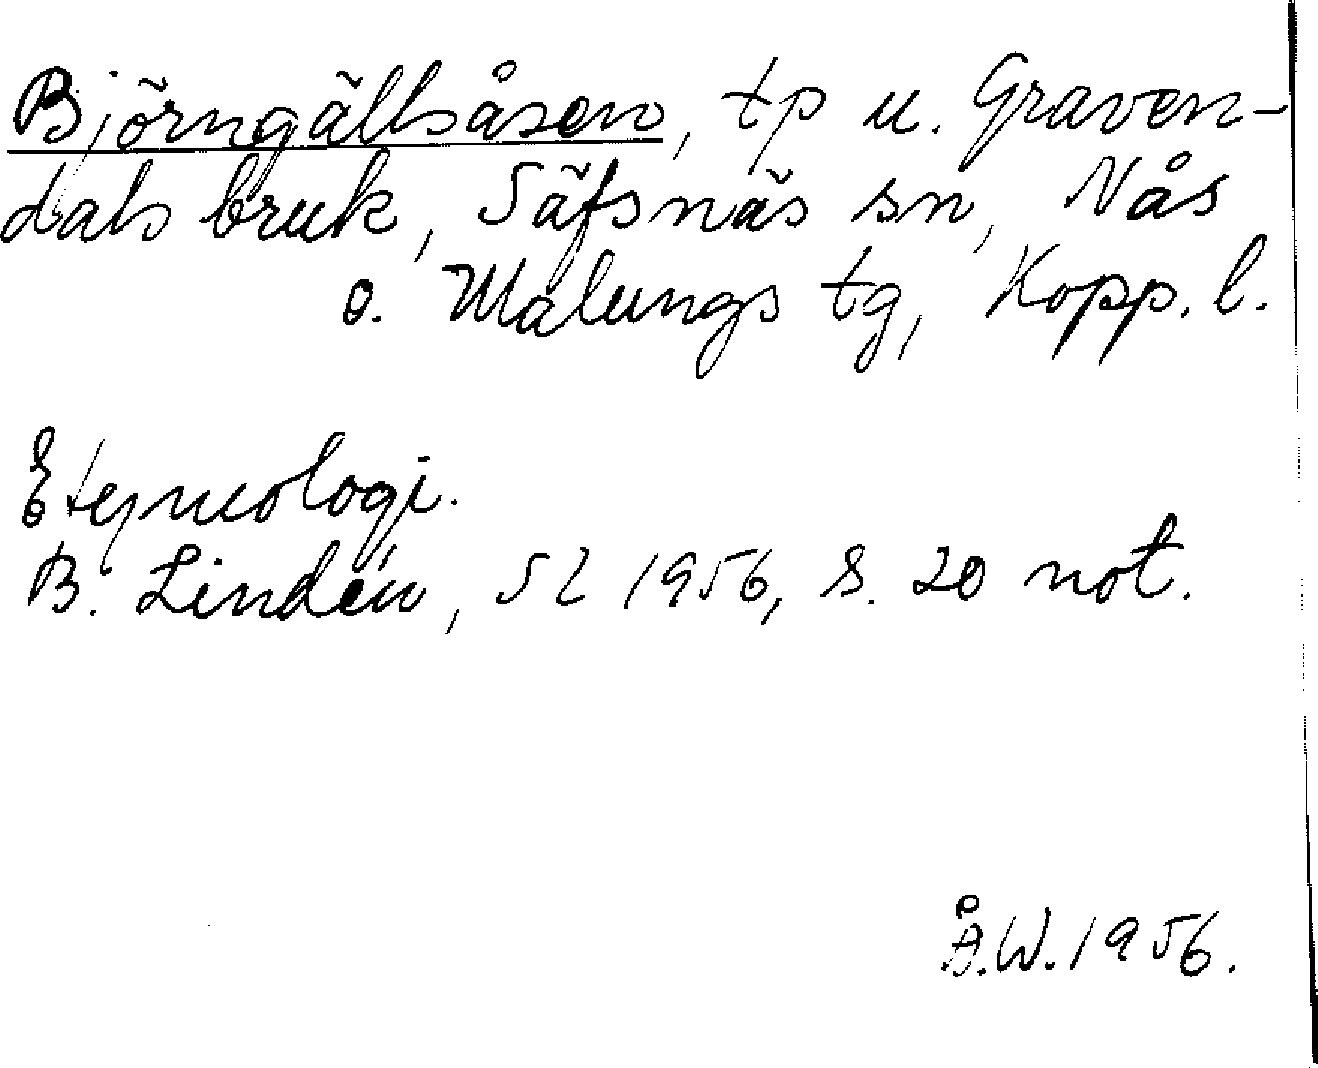 Björngällsåsen, tp u. Graven-
dals bruk, Säfsnäs sn, Nås
o. Malungs tg, Kopp. l.
Etymologi.
B. Lindén, SL 1956, s. 20 not.
Å.W. 1956.